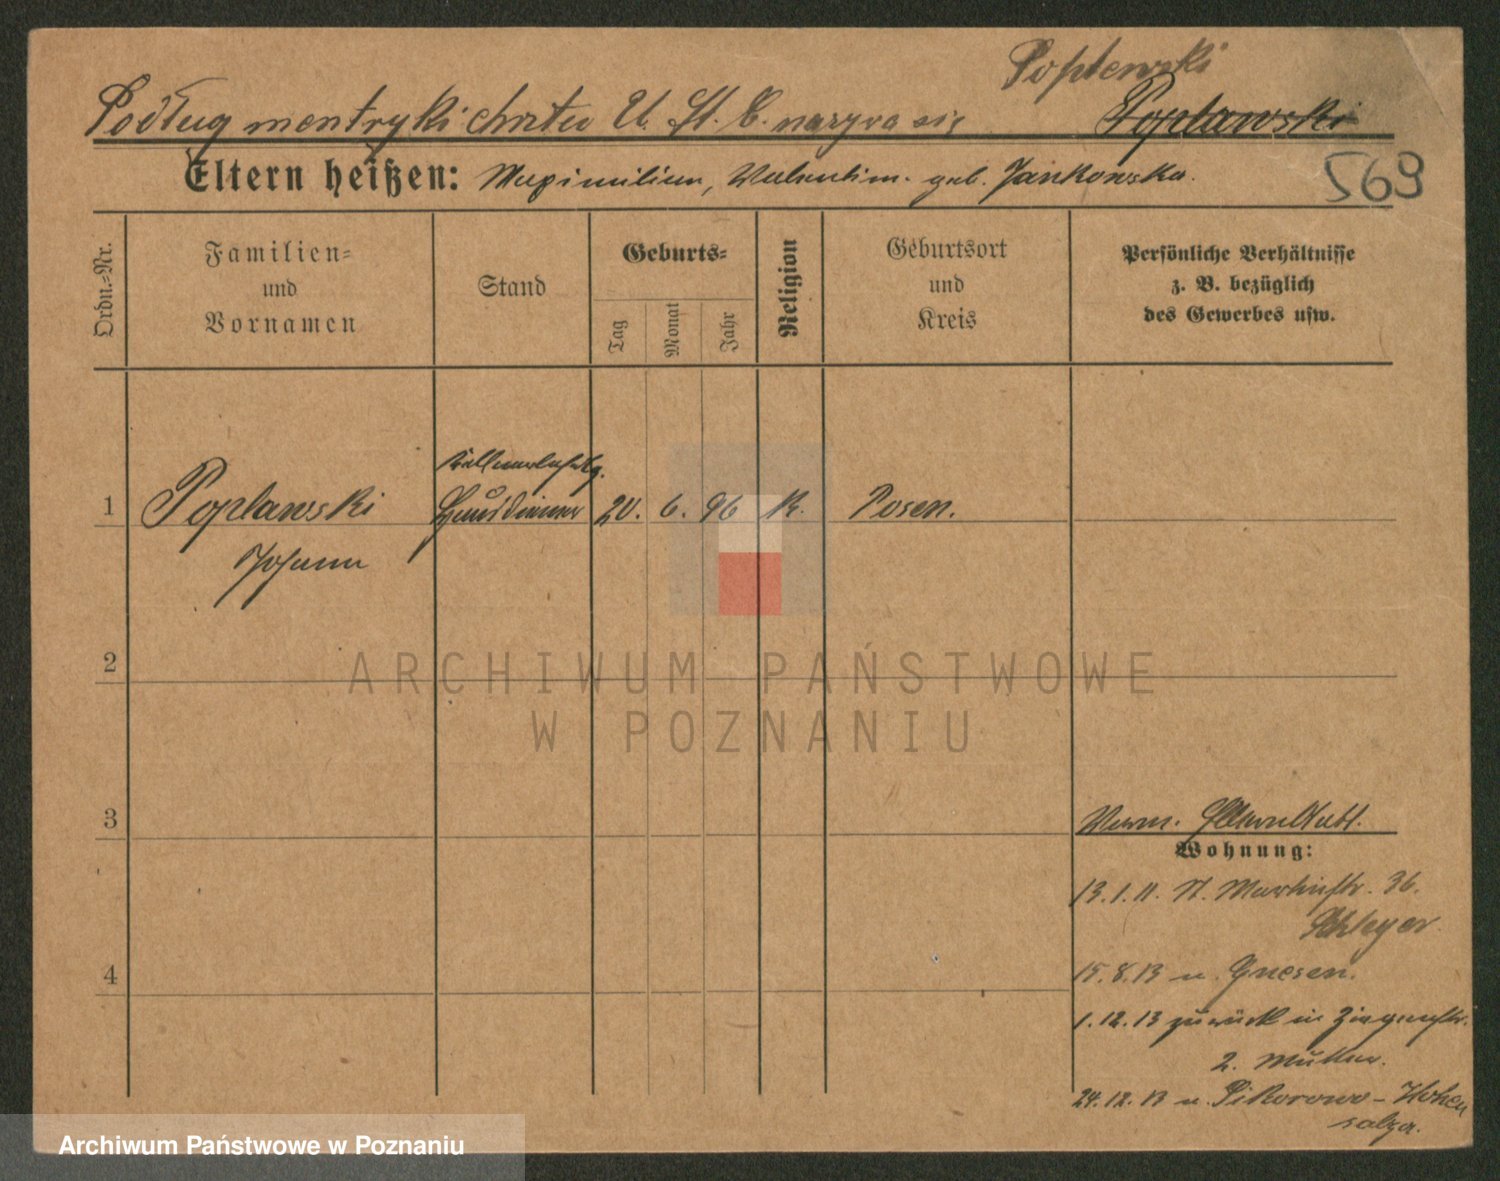 Poplewski
Podług mentryki chrztu U. St. C. nazyva się Popławski
Eltern heißen: Maximilian, Valentin. geb. Jankowska.
569
Ordn.-Nr.
Familien-
und
Vornamen
Stand
Geburts-
Tag
Monat
Jahr
Religion
Geburtsort
und
Kreis
Persönliche Verhältnisse
z. B. bezüglich
des Gewerbes usw.
1 Poplawski Hausdiener 20. 6. 96 k. Posen.
Johann
ARCHIWUM PAŃSTWOWE
W POZNANIU
2
3
4
Wohnung:
13.1.11. St. Martinstr. 36.
15.8.13 n. Gnesen.
1.12.13 zurück in Ziegenstr.
2. Mutter.
24.12.13 n. Sikorowo - Hohen
salza.
Archiwum Państwowe w Poznaniu